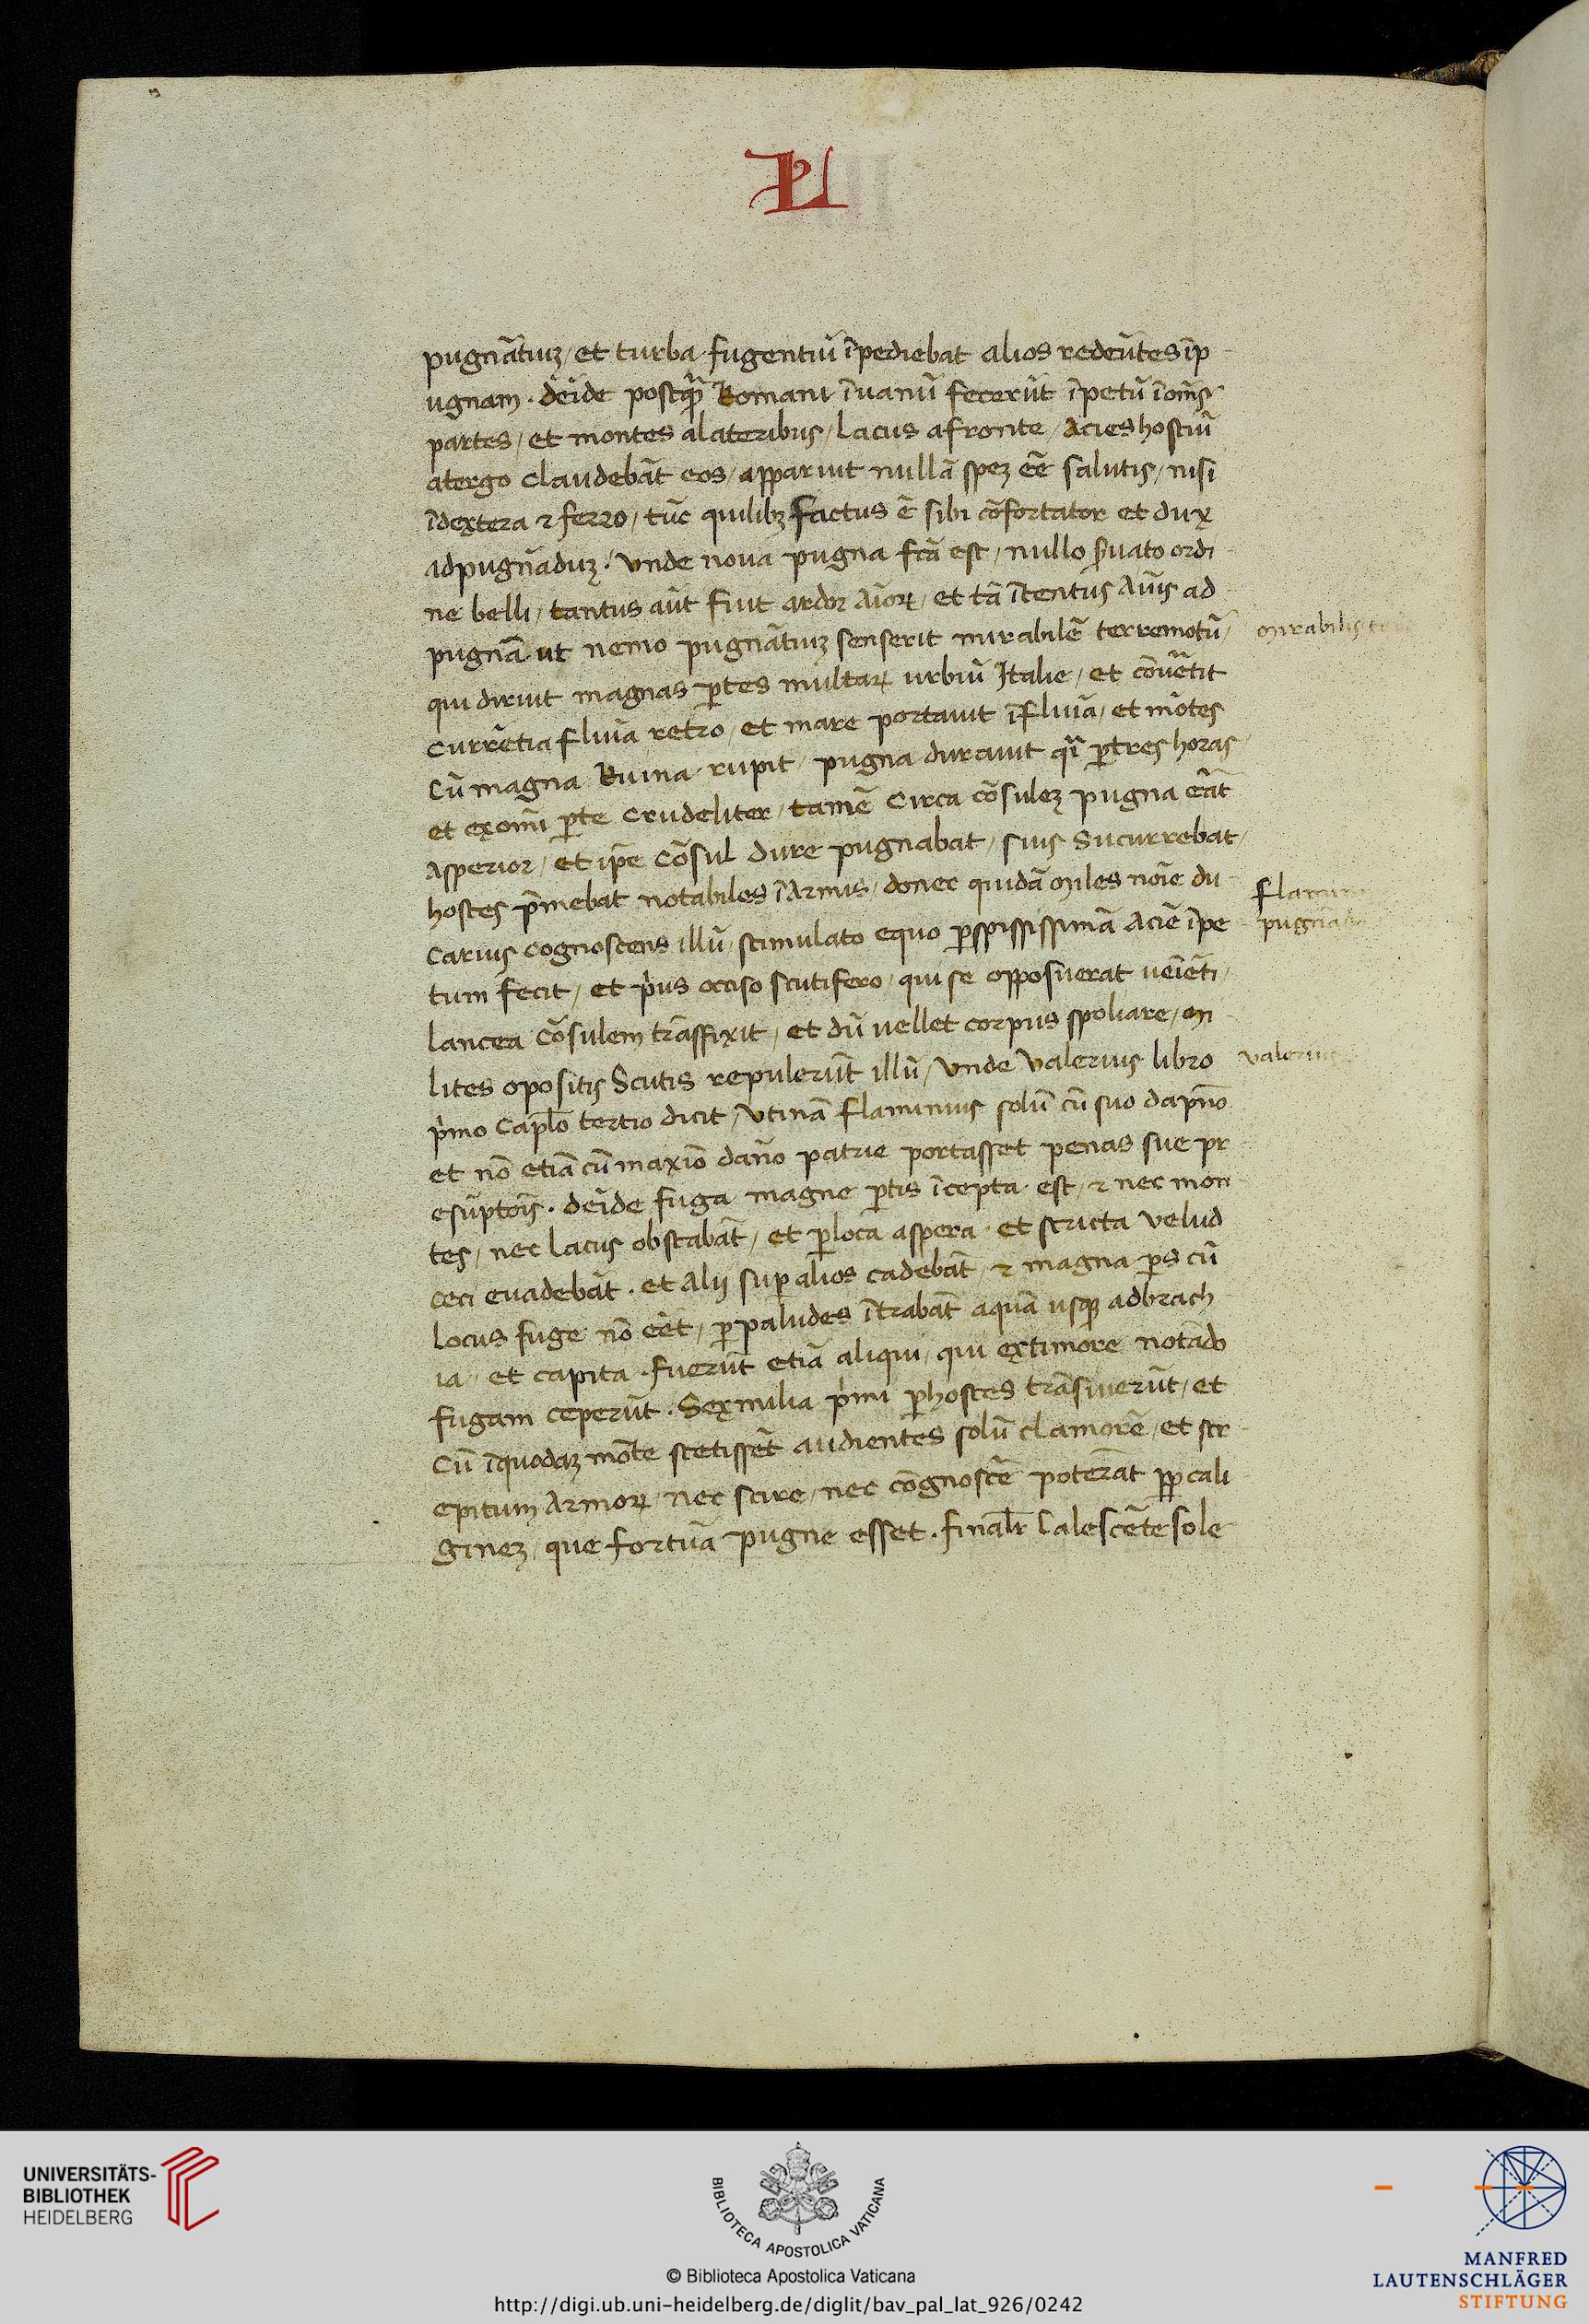 PL
pugnātiuʒ / et turba fugentiū īpediebat alios redeūtes īp
ugnam. deīde postqꝫ̄ Romani īuanū fecerūt īpetū īom̄s
partes / et montes alateribus / lacus afronte / Acies hostiū
atergo claudebāt eos / apparuit nullā speʒ eē̄ salutis / nisi
īdextera ⁊ ferro / tūc quilibꝫ factus ē sibi cōfortator et dux
adpugnāduʒ. Vnde noua pugna fcā est / nullo s̄uato ordi
ne belli / tantus aūt fuit ardor aīoꝝ / et tā ītentus Auīs ad
pugnā ut nemo pugnātiuʒ senserit mirabilē terremotū /
mirabilis
qui diruit magnas ꝑtes multaꝝ urbiū Italie / et cōuētit
currētia fluīa retro / et mare portauit īfluīa / et mōtes
cū magna Ruina rupit / pugna durauit qī ꝑtres horas
et exomī ꝑte crudeliter / tamē circa cōsuleʒ pugna erāt
asperior / et ip̄e cōsul dure pugnabat / suis sucurrebat /
hostes p̄mebat notabiles īArmis / donec quidā miles noīe du
carius cognoscens illū / stimulato equo ꝑspississimā aciē īpe
pugnā
tum fecit / et p̄us occiso scutifero / qui se opposuerat ueīēti /
lancea cōsulem trāsfixit / et dū uellet corpus spoliare / m
lites opositis scutis repulerūt illū / Vnde Valerius libro
valerius
p̄mo caplo tertio dicit / Vtinā flaminius solū cū suo dapno
et nō etiā cū maxīo dāno patrie portasset penas sue pr
esūptōis. deīde fuga magne ꝑtis īcepta est / ⁊ nec mon
tes / nec lacus obstabāt / et ꝑloca aspera et stricta velud
ceci euadebāt. et alij suꝑ alios cadebāt / ⁊ magna ꝑs cū
locus fuge nō eēt / ꝑpaludes ītrabāt aquā usqꝫ adbrach
ia / et capita. fuerūt etiā aliqui / qui extimore notādo
fugam ceperūt. Sexmilia p̄mi ꝑhostes trāsiuerūt / et
cū īquodaʒ mōte stetissēt audientes solū clamorē / et str
epitum armoꝝ / nec scire / nec cōgnoscē poterāt ꝓꝑ cali
gineʒ / que fortūa pugne esset. finalr̄ calescēte sole
UNIVERSITÄTS-
BIBLIOTHEK
HEIDELBERG
BIBLIOTECA APOSTOLICA VATICANA
© Biblioteca Apostolica Vaticana
http://digi.ub.uni-heidelberg.de/diglit/bav_pal_lat_926/0242
MANFRED
LAUTENSCHLÄGER
STIFTUNG